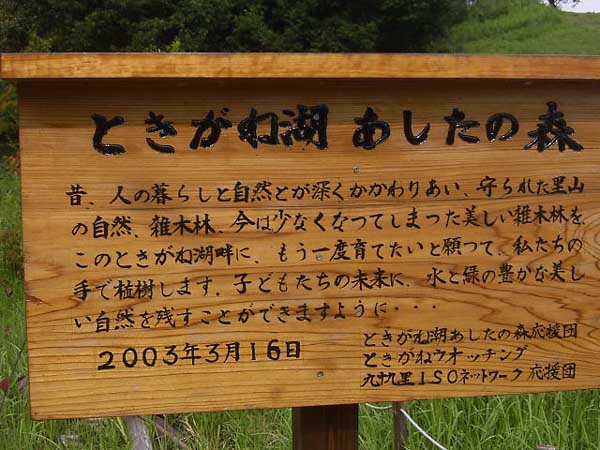 ときがね湖 あしたの森
昔、人の暮らしと自然とが深くかかわりあい、守られた里山
の自然、雑木林、今は少なくなってしまった美しい雑木林を、
このときがね湖畔に、もう一度育てたいと願って、私たちの
手で植樹します。子どもたちの未来に、水と緑の豊かな美し
い自然を残すことができますように・・・
2003年3月16日
ときがね湖あしたの森応援団
ときがねウオッチング
九十九里ISOネットワーク応援団